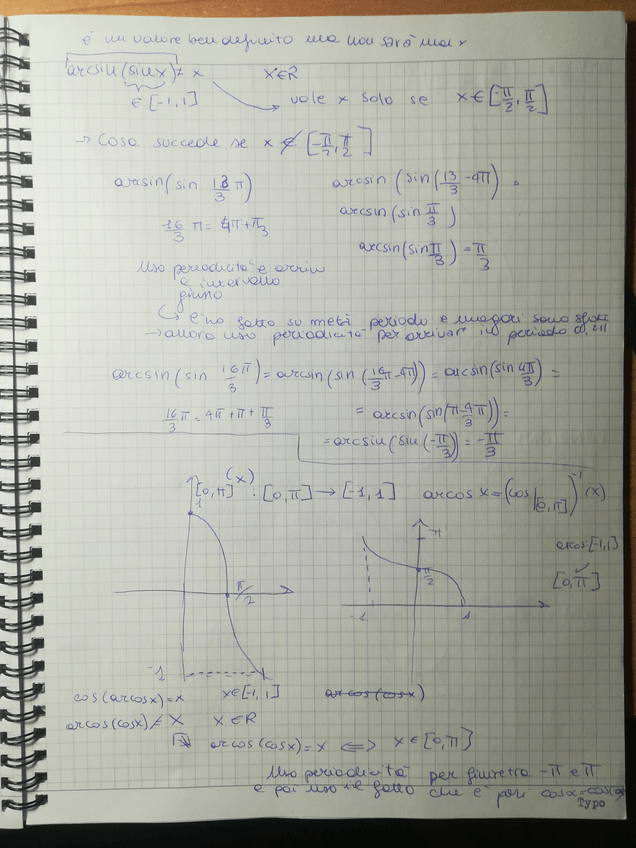 è un valore ben definito ma non sarà mai x
arcsin(sinx) ≠ x x∈R
∈ [-1,1] vale x solo se x∈[-π/2, π/2]
→ Cosa succede se x ∉ [-π/2, π/2]
arcsin(sin 13/3 π) arcsin(sin(13/3 - 4π)
16/3 π = 4π + π/3 arcsin(sin π/3)
arcsin(sin π/3) = π/3
Uso periodicità e arrivo
a intervallo
giusto
↳ e ho fatto su metà periodo e magari sono
→ allora uso periodicità per arrivar in periodo
arcsin(sin 16π/3) = arcsin(sin(16/3 π - 4π)) = arcsin(sin 4π/3) =
16π/3 = 4π + π + π/3 = arcsin(sin(π - 4/3 π)) =
= arcsin(sin(-π/3)) = -π/3
[0,π] (x) : [0,π] → [-1,1] arcos x = (cos|[0,π])^-1 (x)
1 π
arcos[-1,1]
π/2 π/2 [0,π]
-1 1
-1
cos(arcosx) = x x∈[-1,1] arcos(cosx)
arcos(cosx) ≠ x x∈R
arcos(cosx) = x ⟺ x∈[0,π]
Uso periodicità per finire tra -π e π
e poi uso il fatto che è pari cosα =
Typo